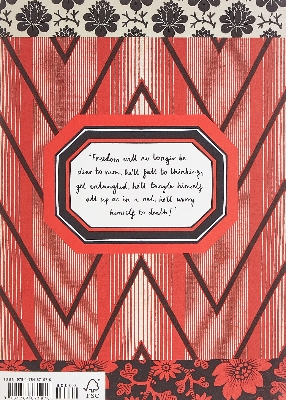 'Freedom will no longer be
dear to him, he'll fall to thinking,
get entangled, he'll tangle himself
all up as in a net, he'll worry
himself to death!'
FSC